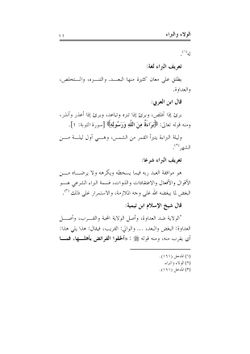 الولاء والبراء
١١
به(١).
تعريف البراء لغة:
يطلق على معان كثيرة منها البعد، والتنزه، والتخلص،
والعداوة.
قال ابن العربي:
برئ إذا تخلص، وبرئ إذا تنزه وتباعد، وبرئ إذا أعذر وأنذر.
ومنه قوله تعالى: ﴿بَرَاءَةٌ مِنَ اللَّهِ وَرَسُولِهِ﴾ [سورة التوبة: ١].
وليلة البراءة يتبرأ القمر من الشمس، وهي أول ليلة من
الشهر(٢).
تعريف البراء شرعًا:
هو موافقة العبد ربه فيما يسخطه ويكرهه ولا يرضاه من
الأقوال والأفعال والاعتقادات والذوات، فسمة البراء الشرعي هو
البغض لما يبغضه الله على وجه الملازمة، والاستمرار على ذلك(٣).
قال شيخ الإسلام ابن تيمية:
"الولاية ضد العداوة، وأصل الولاية المحبة والقرب، وأصل
العداوة: البغض والبعد ... والولي: القريب، فيقال: هذا يلي هذا:
أي يقرب منه، ومنه قوله ﷺ: «ألحقوا الفرائض بأهلها، فما
(١) المدخل (١٦١).
(٢) الولاء والبراء
(٣) المدخل (١٦١).